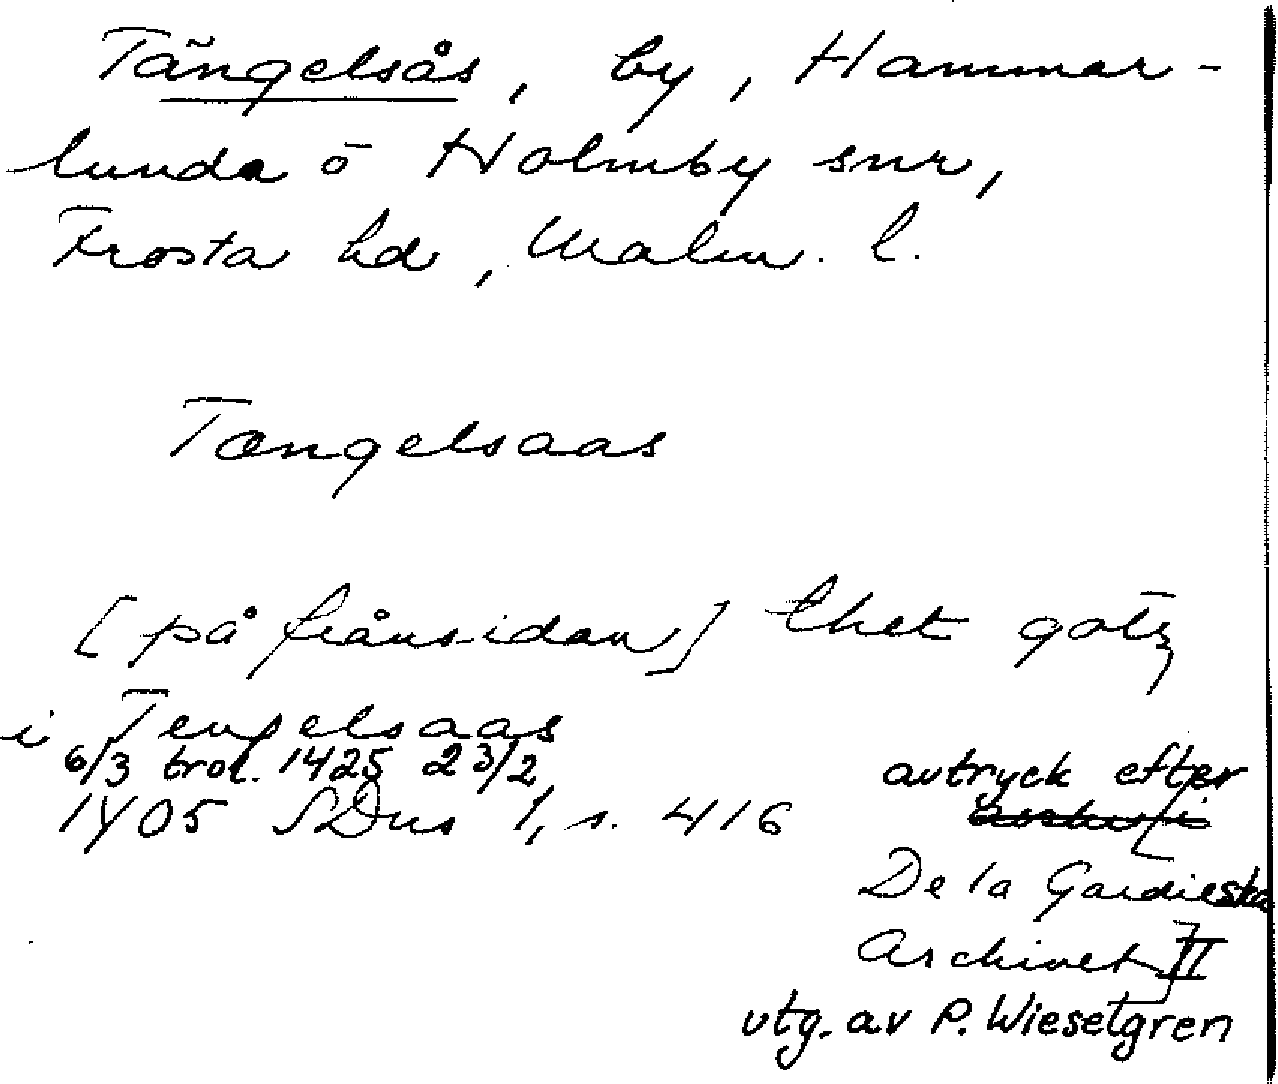 Tängelsås, by, Hammar-
lunda o Holmby snr,
Frosta hd, Malm. l.
Tængelsaas
[på frånsidan] thet gotz
i Tengelsaas
6/3 trol. 1425 23/2
1405 SDns 1, s. 416
avtryck efter
De la Gardieska
Archivet II
utg. av P. Wieselgren